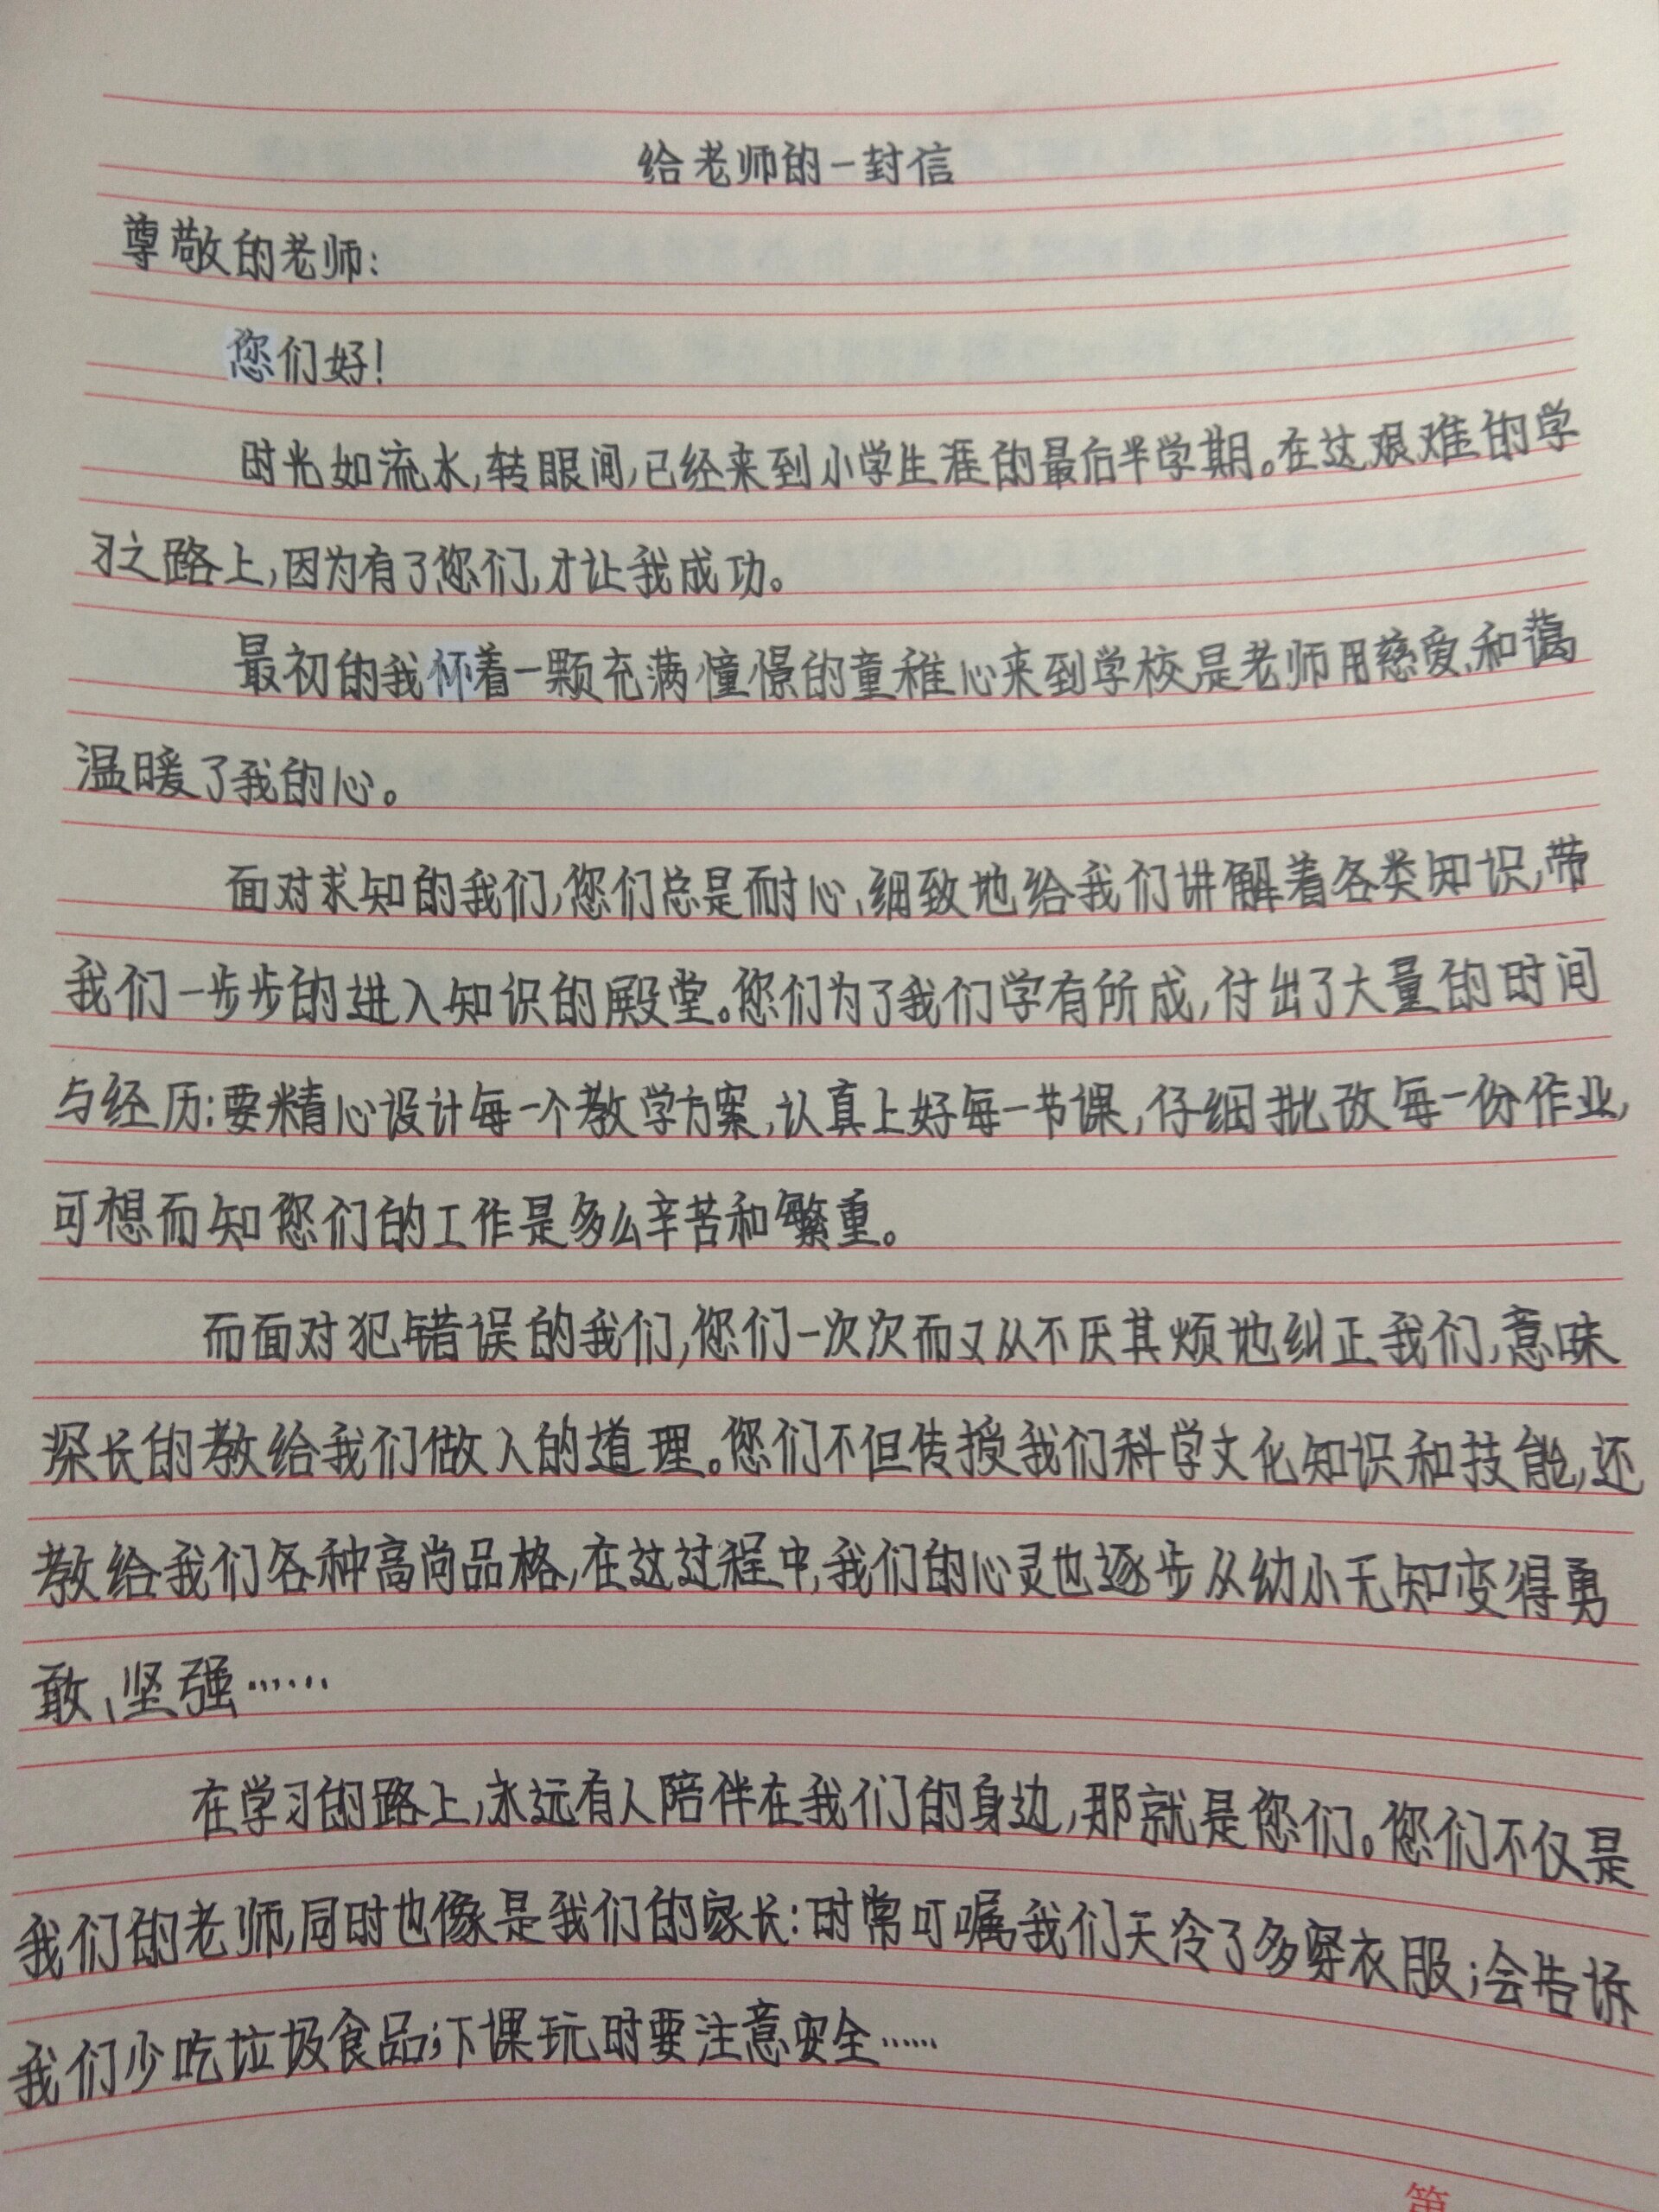 给老师的一封信
尊敬的老师:
您们好!
时光如流水,转眼间,已经来到小学生涯的最后半学期。在这艰难的学
习之路上,因为有了您们,才让我成功。
最初的我怀着一颗充满憧憬的童稚心来到学校是老师用慈爱、和蔼
温暖了我的心。
面对求知的我们,您们总是耐心、细致地给我们讲解着各类知识,带
我们一步步的进入知识的殿堂。您们为了我们学有所成,付出了大量的时间
与经历:要精心设计每一个教学方案,认真上好每一节课,仔细批改每一份作业,
可想而知您们的工作是多么辛苦和繁重。
而面对犯错误的我们,您们一次次而又从不厌其烦地纠正我们,意味
深长的教给我们做人的道理。您们不但传授我们科学文化知识和技能,还
教给我们各种高尚品格,在这过程中,我们的心灵也逐步从幼小无知变得勇
敢、坚强……
在学习的路上,永远有人陪伴在我们的身边,那就是您们。您们不仅是
我们的老师,同时也像是我们的家长:时常叮嘱我们天冷了多穿衣服;会告诉
我们少吃垃圾食品;下课玩时要注意安全……
第